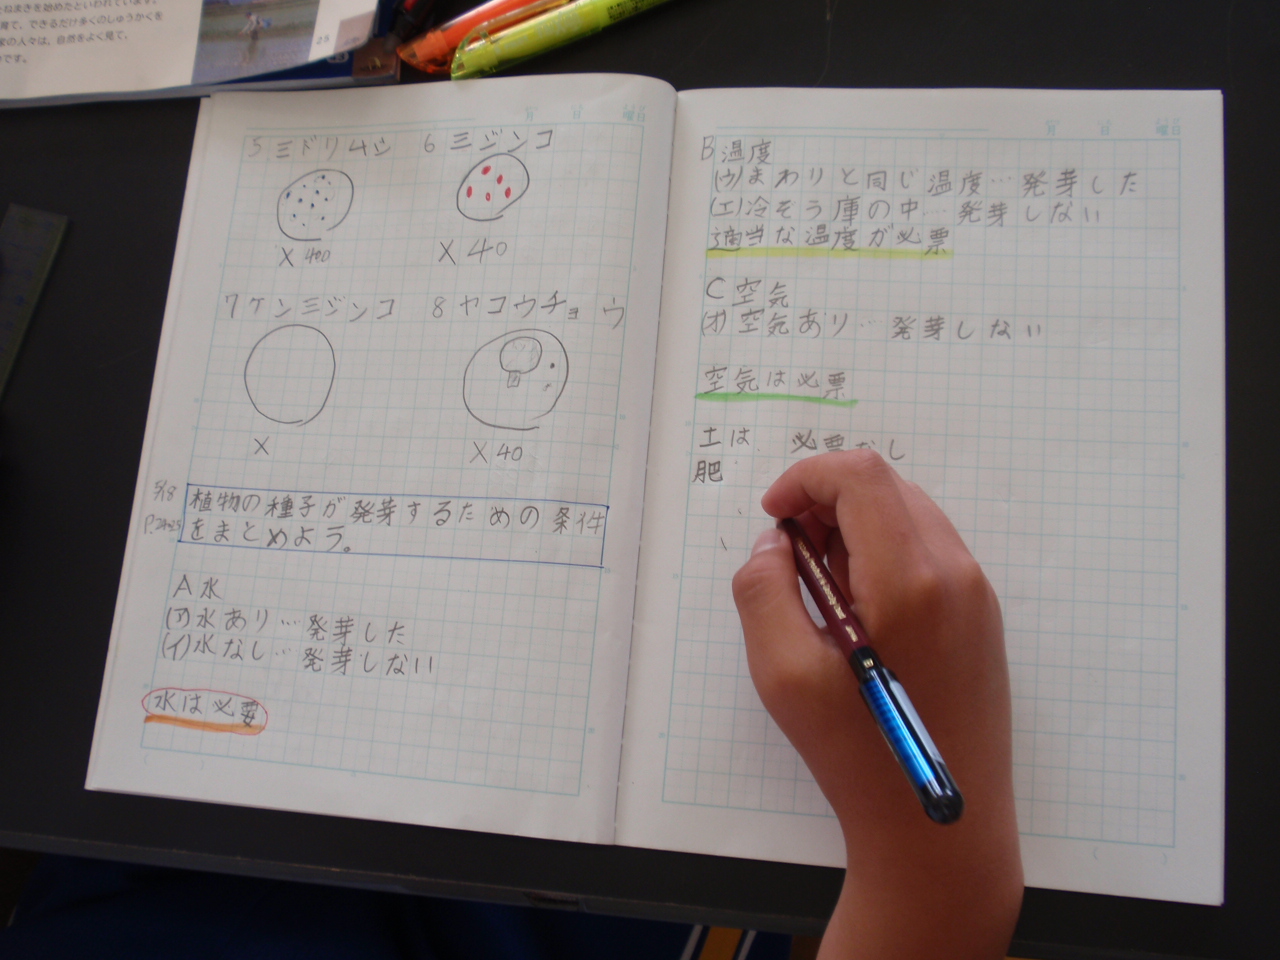 たねまきを始めたといわれています。
育て、できるだけ多くのしゅうかくを
家の人々は、自然をよく見て、
です。
25
月 日 曜日
5 ミドリムシ 6 ミジンコ
X 400 X 40
7 ケンミジンコ 8 ヤコウチョウ
X X 40
5/18
P.24~25
植物の種子が発芽するための条件
をまとめよう。
A 水
(ア)水あり…発芽した
(イ)水なし…発芽しない
水は必要
月 日 曜日
B 温度
(ウ)まわりと同じ温度…発芽した
(エ)冷そう庫の中…発芽しない
適当な温度が必票
C 空気
(オ)空気あり…発芽しない
空気は必票
土は 必票なし
肥